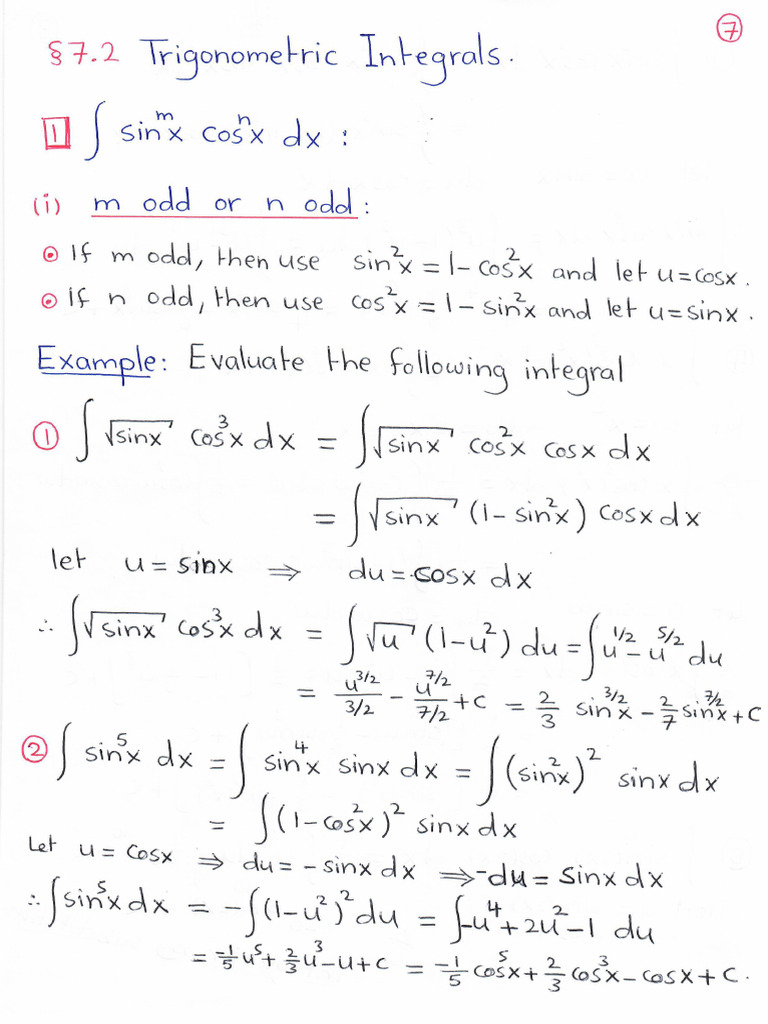 ⑦
§7.2 Trigonometric Integrals.
1 ∫ sin^m x cos^n x dx :
(i) m odd or n odd :
• If m odd, then use sin²x = 1 - cos²x and let u = cosx.
• If n odd, then use cos²x = 1 - sin²x and let u = sinx.
Example: Evaluate the following integral
① ∫ √sinx cos³x dx = ∫ √sinx cos²x cosx dx
= ∫ √sinx (1 - sin²x) cosx dx
let u = sinx ⇒ du = cosx dx
∴ ∫ √sinx cos³x dx = ∫ √u (1 - u²) du = ∫ u^1/2 - u^5/2 du
= u^3/2 / 3/2 - u^7/2 / 7/2 + C = 2/3 sin^3/2 x - 2/7 sin^7/2 x + C
② ∫ sin⁵x dx = ∫ sin⁴x sinx dx = ∫ (sin²x)² sinx dx
= ∫ (1 - cos²x)² sinx dx
Let u = cosx ⇒ du = - sinx dx ⇒ -du = sinx dx
∴ ∫ sin⁵x dx = - ∫ (1 - u²)² du = ∫ -u⁴ + 2u² - 1 du
= -1/5 u⁵ + 2/3 u³ - u + C = -1/5 cos⁵x + 2/3 cos³x - cosx + C.